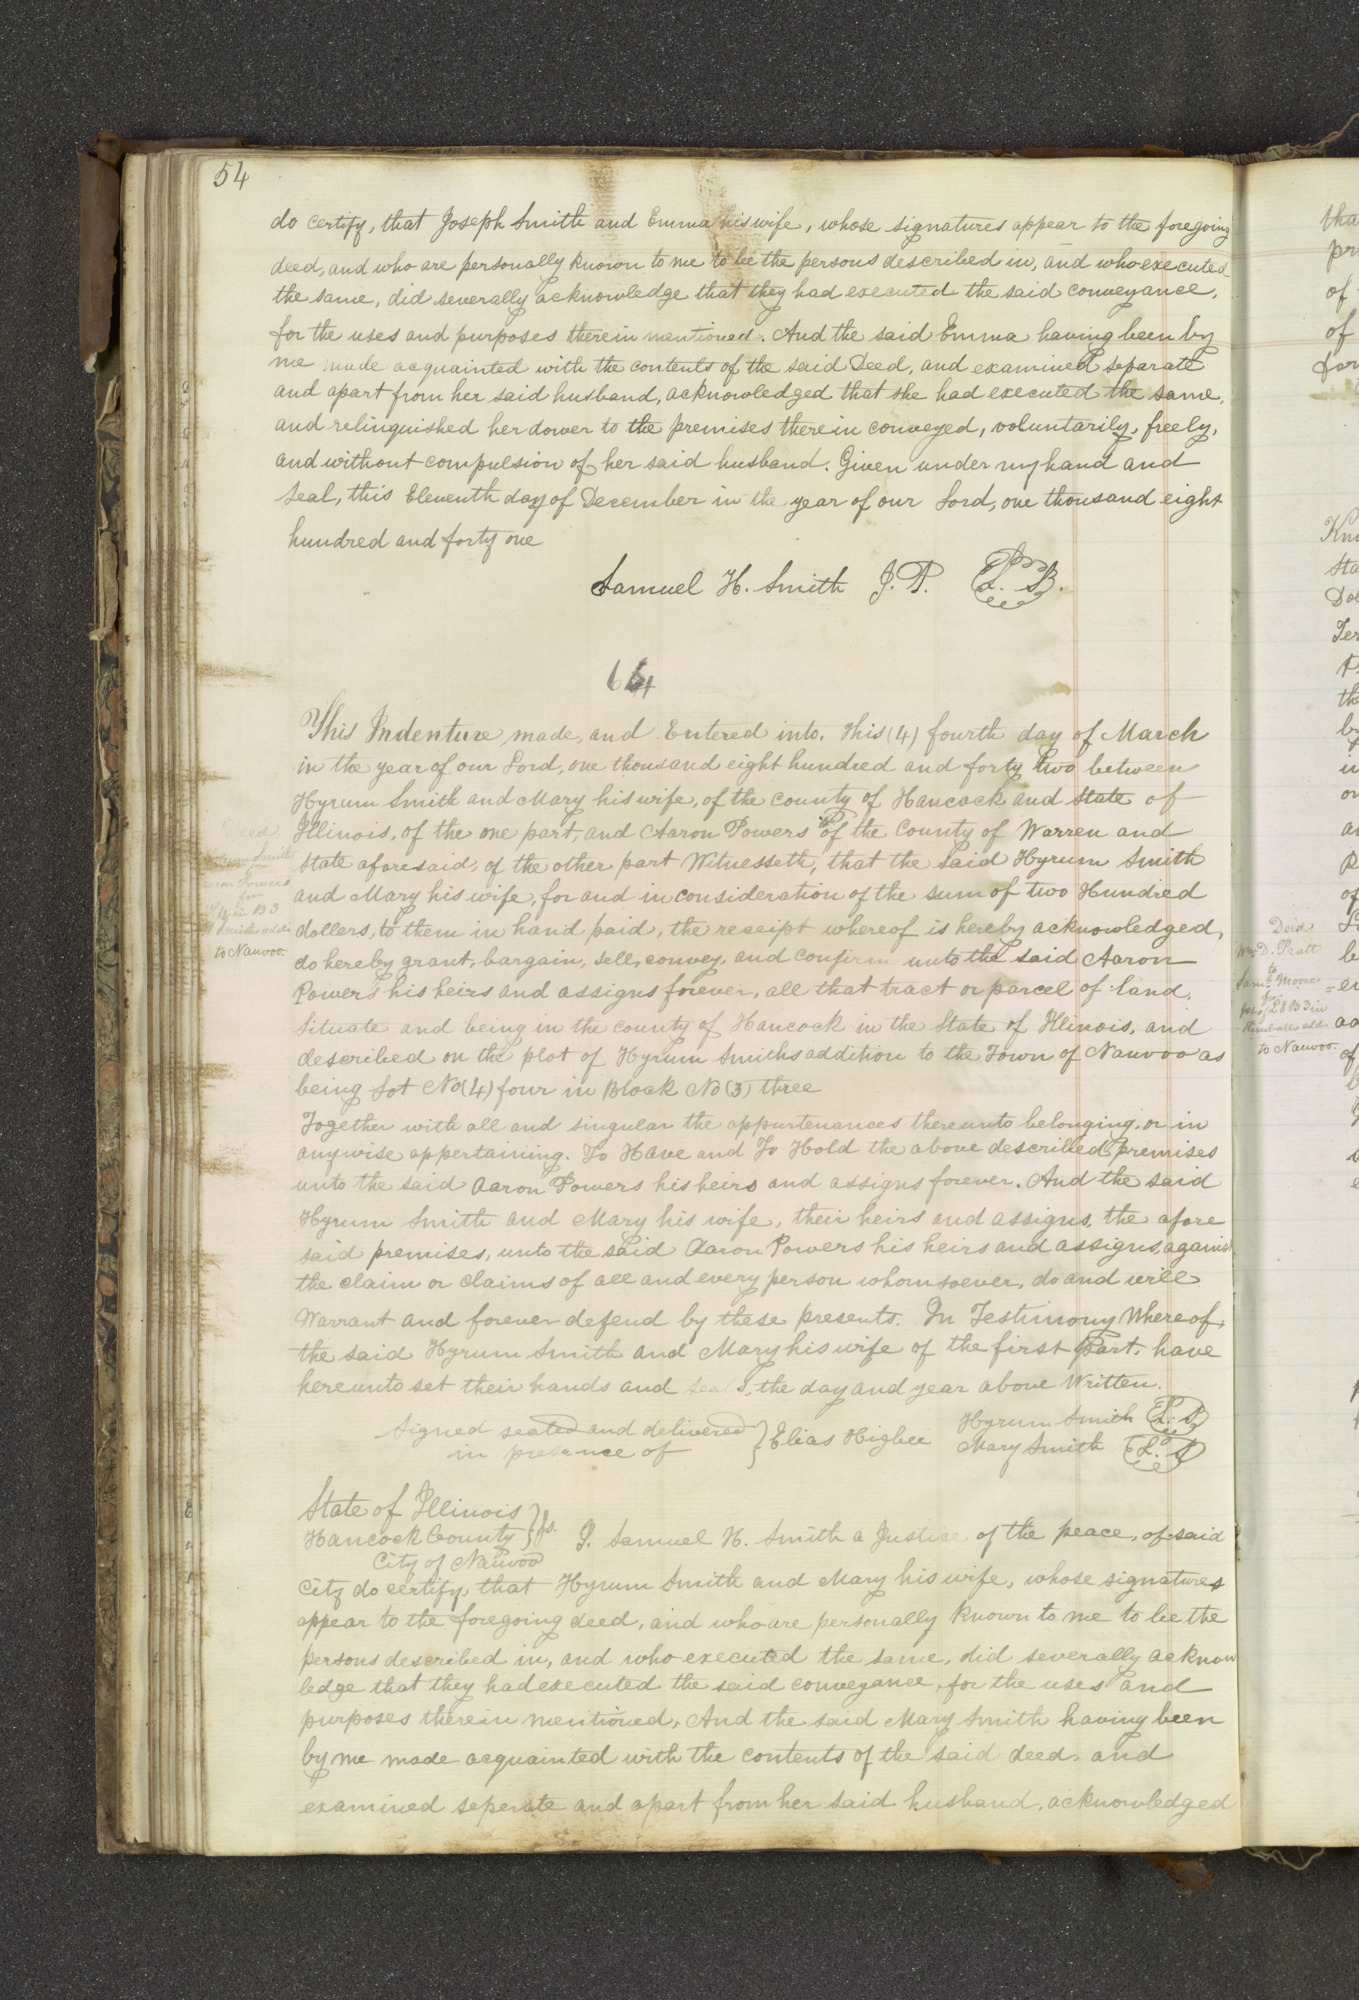 54
do certify, that Joseph Smith and Emma his wife, whose signatures appear to the foregoing
deed, and who are personally known to me to be the persons described in, and who executed
the same, did severally acknowledge that they had executed the said conveyance,
for the uses and purposes therein mentioned. And the said Emma having been by
me made acquainted with the contents of the said Deed, and examined separate
and apart from her said husband, acknowledged that she had executed the same,
and relinquished her dower to the premises therein conveyed, voluntarily, freely,
and without compulsion of her said husband. Given under my hand and
Seal, this Eleventh day of December in the year of our Lord, one thousand eight
hundred and forty one
Samuel H. Smith J. P. L. S.
64
This Indenture made, and Entered into. this (4) fourth day of March
in the year of our Lord, one thousand eight hundred and forty two between
Hyrum Smith and Mary his wife, of the county of Hancock and State of
Illinois, of the one part, and Aaron Powers of the County of Warren and
State aforesaid, of the other part Witnesseth, that the said Hyrum Smith
and Mary his wife, for and in consideration of the sum of two Hundred
dollers, to them in hand paid, the receipt whereof is hereby acknowledged,
do hereby grant, bargain, sell, convey, and confirm unto the said Aaron
Powers his heirs and assigns forever, all that tract or parcel of land.
Situate and being in the county of Hancock in the State of Illinois, and
described on the plot of Hyrum Smiths addition to the Town of Nauvoo as
being Lot No (4) four in Block No (3) three
Together with all and singular the appurtenances thereunto belonging, or in
anywise appertaining. To Have and To Hold the above described premises
unto the said Aaron Powers his heirs and assigns forever. And the said
Hyrum Smith and Mary his wife, their heirs and assigns, the afore
said premises, unto the said Aaron Powers his heirs and assigns, against
the claim or claims of all and every person whomsoever, do and will
Warrant and forever defend by these presents. In Testimony Whereof,
the said Hyrum Smith and Mary his wife of the first Part, have
hereunto set their hands and seals, the day and year above Written.
Signed sealed and delivered } Elias Higbee Hyrum Smith L. S
in presence of Mary Smith L. S
State of Illinois
Hancock County } ss. I. Samuel H. Smith a Justice of the peace, of said
City of Nauvoo
City do certify, that Hyrum Smith and Mary his wife, whose signatures
appear to the foregoing deed, and who are personally known to me to be the
persons described in, and who executed the same, did severally acknow
ledge that they had executed the said conveyance, for the uses and
purposes therein mentioned, And the said Mary Smith having been
by me made acquainted with the contents of the said deed, and
examined seperate and apart from her said husband, acknowledged
Deed
Hyrum Smith
Aaron Powers
for
L 4 in B 3
H Smiths addi
to Nauvoo.
Deed
Wm. D. Pratt
to
Saml. Moore
for
L 8 B 3 in
Kimballs add.
to Nauvoo.